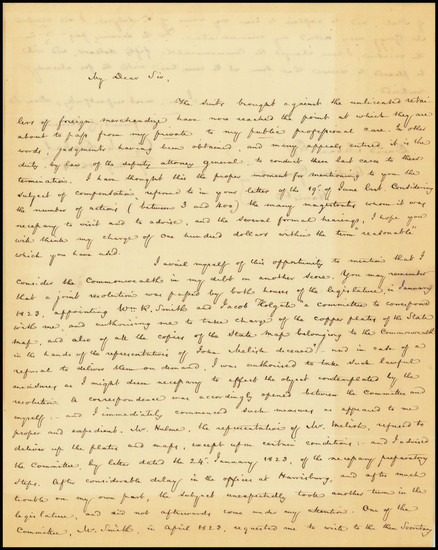 My Dear Sir,
The suits brought against the unlicensed retai
lers of foreign merchandize have now reached the point at which they are
about to pass from my private to my public professional care. In other
words, judgments having been obtained, and many appeals entered, it is the
duty, by law, of the deputy attorney general, to conduct these last cases to their
termination. I have thought this the proper moment for mentioning to you the
subject of compensation, referred to in your letter of the 19th of June last. Considering
the number of actions (between 3 and 400) the many magistrates whom it was
necessary to visit and to advise, and the several formal hearings, I hope you
will think my charge of one hundred dollars within the term "reasonable"
which you have used.
I avail myself of this opportunity to mention that I
consider the Commonwealth in my debt on another score. You may remember
that a joint resolution was passed by both houses of the legislature, in January
1823, appointing Wm R. Smith and Jacob Holgate "a committee to correspond
with me, and authorizing me to take charge of the copper plates of the State
Map, and also of all the copies of the State Map belonging to the Commonwealth
in the hands of the representatives of John Melish deceased", and in case of a
refusal to deliver them on demand, I was authorised to take such lawful
measures as I might deem necessary to effect the object contemplated by the
resolution. A correspondence was accordingly opened between the Committee and
myself; and I immediately commenced such measures as appeared to me
proper and expedient. Mr. Hulme, the representative of Mr. Melish, refused to
deliver up the plates and maps, except upon certain conditions; and I advised
the Committee, by letter dated the 24th January 1823, of the necessary preparatory
steps. After considerable delay in the offices at Harrisburg, and after much
trouble on my own part, the subject unexpectedly took another turn in the
legislature, and did not afterwards come under my attention. One of the
Committee, Mr. Smith, in April 1823, requested me to write to the then Secretary